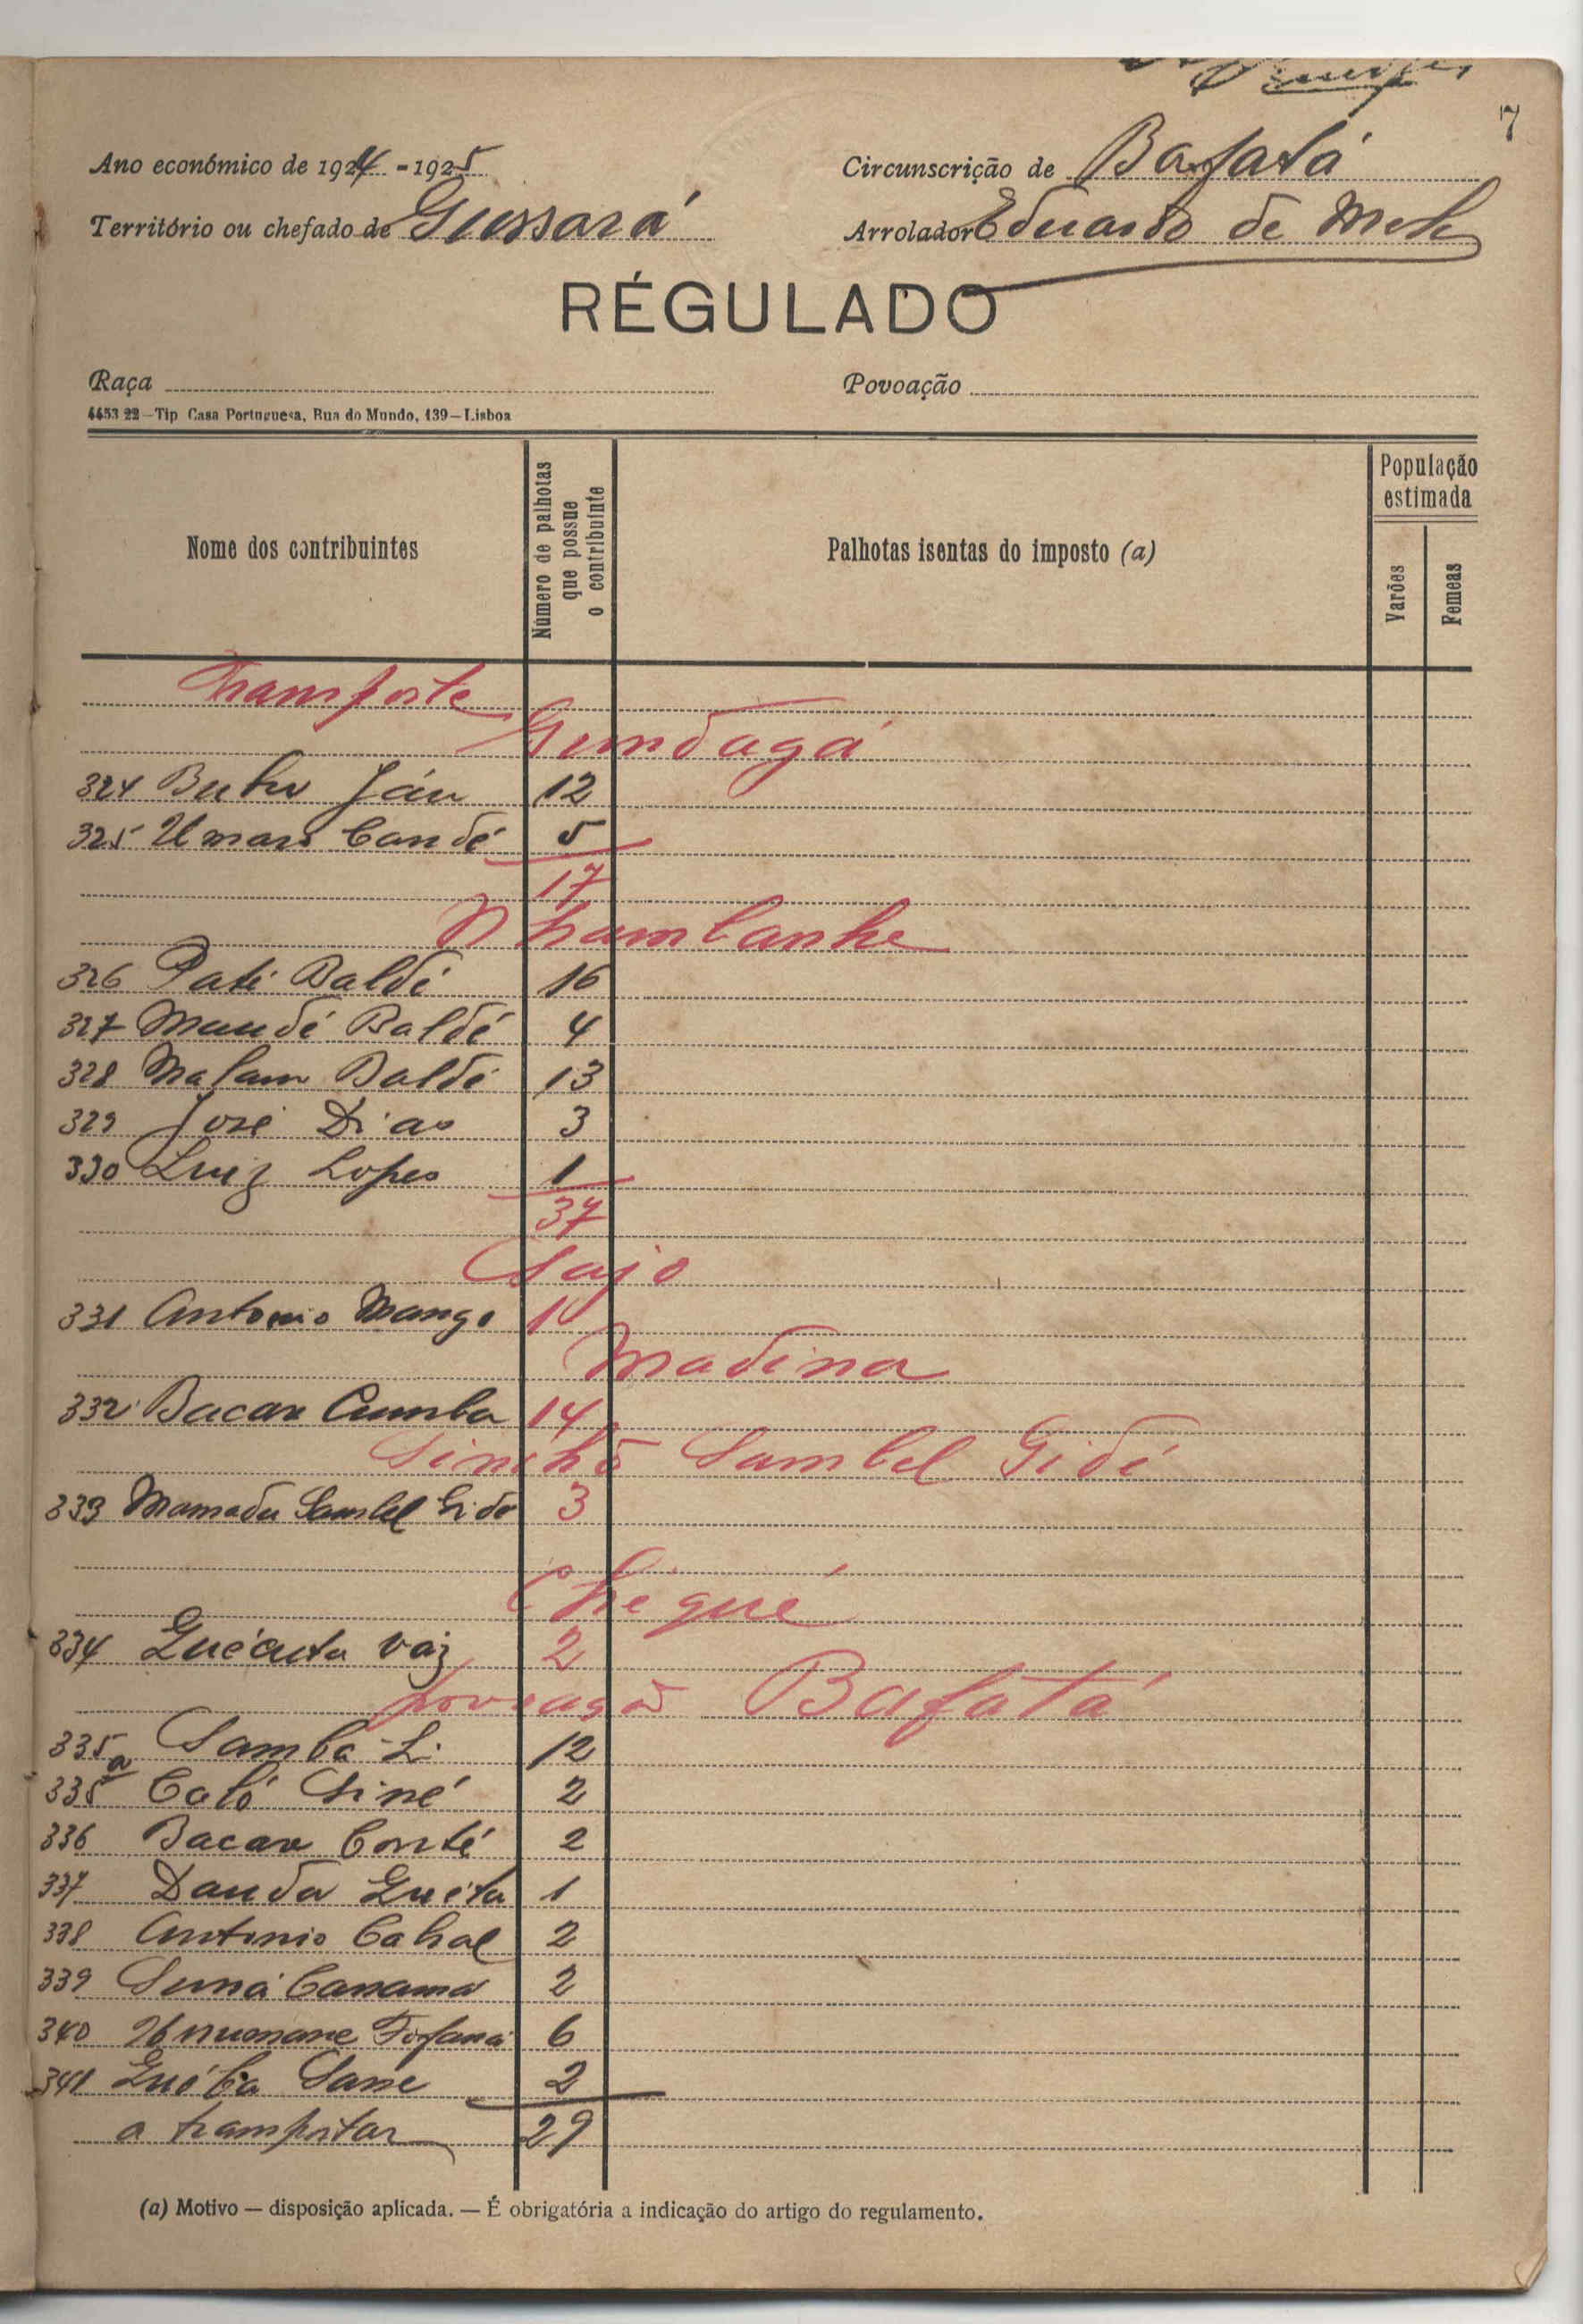 7
Ano económico de 1924 - 1925
Circunscrição de Bafatá
Território ou chefado de Gussará
Arrolador Eduardo de Melo
RÉGULADO
Raça
Povoação
4453 22 — Tip Casa Portuguesa, Rua do Mundo, 139 — Lisboa
Nome dos contribuintes
Número de palhotas que possue o contribuinte
Palhotas isentas do imposto (a)
População estimada
Varões
Femeas
Transporte
Gundagá
324 Jáu 12
325 Umaro Candé 5
17
Nhamlanhe
326 Pati Baldé 16
327 Maudé Baldé 4
328 Malam Baldé 13
329 José Dias 3
330 Luiz Lopes 1
37
Sajo
331 Antonio Mango 1
Madina
332 Bacar Cumba 14
Sinchã Sambel Gidé
333 Mamadu Sambel Gidé 3
Chéqué
334 Quécuta Vaz 2
povoação Bafatá
335 Samba Li 12
335a Caló Siné 2
336 Bacar Conté 2
337 Dauda Queita 1
338 Antonio Cabral 2
339 Suná Camará 2
340 Fofaná 6
341 Québa Sane 2
a transportar 29
(a) Motivo — disposição aplicada. — É obrigatória a indicação do artigo do regulamento.